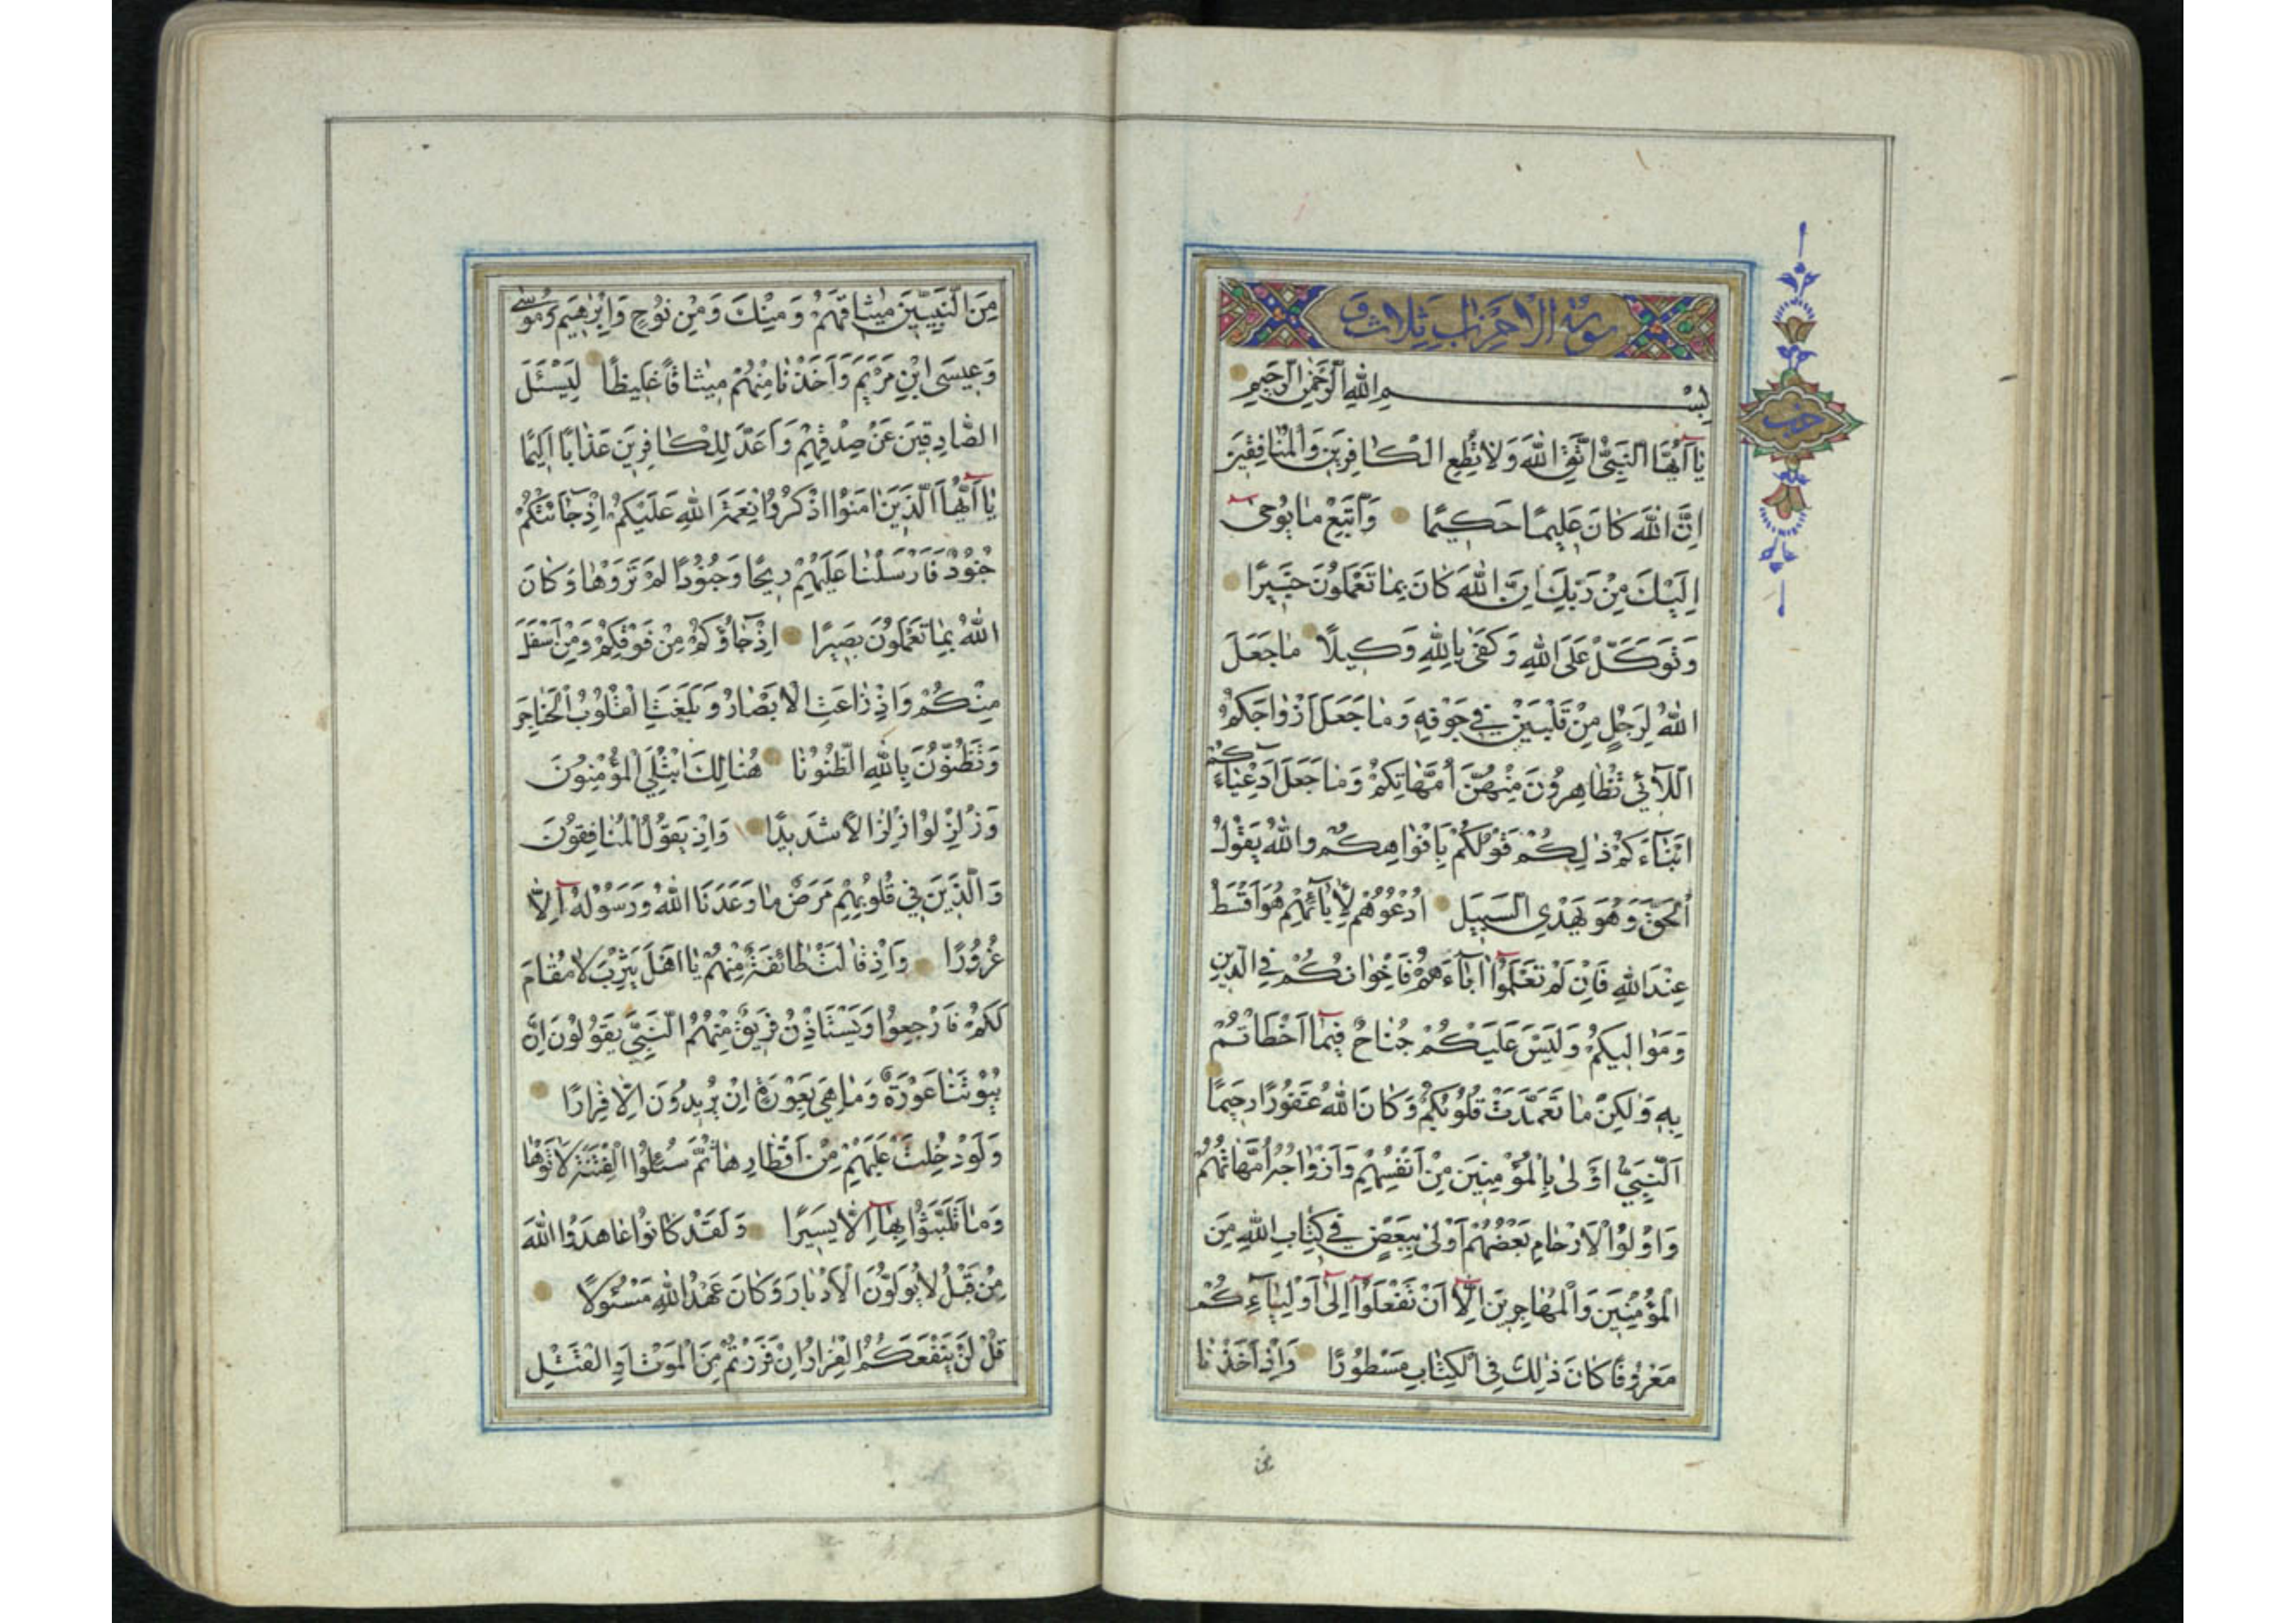 سورة الاحزاب ثلاث و
حزب
بِسْمِ اللهِ الرَّحْمٰنِ الرَّحِيمِ
يٰٓا اَيُّهَا النَّبِيُّ اتَّقِ اللّٰهَ وَلَا تُطِعِ الْكٰافِرِينَ وَالْمُنٰافِقِينَ
اِنَّ اللّٰهَ كٰانَ عَلِيمًا حَكِيمًا وَاتَّبِعْ مٰا يُوحٰى
اِلَيْكَ مِنْ رَبِّكَ اِنَّ اللّٰهَ كٰانَ بِمٰا تَعْمَلُونَ خَبِيرًا
وَتَوَكَّلْ عَلَى اللّٰهِ وَكَفٰى بِاللّٰهِ وَكِيلًا مٰا جَعَلَ
اللّٰهُ لِرَجُلٍ مِنْ قَلْبَيْنِ فِي جَوْفِهِ وَمٰا جَعَلَ اَزْوٰاجَكُمُ
اللّٰٓائِي تُظٰاهِرُونَ مِنْهُنَّ اُمَّهٰاتِكُمْ وَمٰا جَعَلَ اَدْعِيٰٓاءَكُمْ
اَبْنٰٓاءَكُمْ ذٰلِكُمْ قَوْلُكُمْ بِاَفْوٰاهِكُمْ وَاللّٰهُ يَقُولُ
الْحَقَّ وَهُوَ يَهْدِي السَّبِيلَ اُدْعُوهُمْ لِاٰبٰائِهِمْ هُوَ اَقْسَطُ
عِنْدَ اللّٰهِ فَاِنْ لَمْ تَعْلَمُوٓا اٰبٰٓاءَهُمْ فَاِخْوٰانُكُمْ فِي الدِّينِ
وَمَوٰالِيكُمْ وَلَيْسَ عَلَيْكُمْ جُنٰاحٌ فِيمٰٓا اَخْطَاْتُمْ
بِهِ وَلٰكِنْ مٰا تَعَمَّدَتْ قُلُوبُكُمْ وَكٰانَ اللّٰهُ غَفُورًا رَحِيمًا
اَلنَّبِيُّ اَوْلٰى بِالْمُؤْمِنِينَ مِنْ اَنْفُسِهِمْ وَاَزْوٰاجُهُ اُمَّهٰاتُهُمْ
وَاُولُوا الْاَرْحٰامِ بَعْضُهُمْ اَوْلٰى بِبَعْضٍ فِي كِتٰابِ اللّٰهِ مِنَ
الْمُؤْمِنِينَ وَالْمُهٰاجِرِينَ اِلّٰٓا اَنْ تَفْعَلُوٓا اِلٰٓى اَوْلِيٰٓاءِكُمْ
مَعْرُوفًا كٰانَ ذٰلِكَ فِي الْكِتٰابِ مَسْطُورًا وَاِذْ اَخَذْنٰا
مِنَ
مِنَ النَّبِيِّينَ مِيثٰاقَهُمْ وَمِنْكَ وَمِنْ نُوحٍ وَاِبْرٰهِيمَ وَمُوسٰى
وَعِيسَى ابْنِ مَرْيَمَ وَاَخَذْنٰا مِنْهُمْ مِيثٰاقًا غَلِيظًا لِيَسْئَلَ
الصّٰادِقِينَ عَنْ صِدْقِهِمْ وَاَعَدَّ لِلْكٰافِرِينَ عَذٰابًا اَلِيمًا
يٰٓا اَيُّهَا الَّذِينَ اٰمَنُوا اذْكُرُوا نِعْمَةَ اللّٰهِ عَلَيْكُمْ اِذْ جٰٓاءَتْكُمْ
جُنُودٌ فَاَرْسَلْنٰا عَلَيْهِمْ رِيحًا وَجُنُودًا لَمْ تَرَوْهٰا وَكٰانَ
اللّٰهُ بِمٰا تَعْمَلُونَ بَصِيرًا اِذْ جٰٓاؤُكُمْ مِنْ فَوْقِكُمْ وَمِنْ اَسْفَلَ
مِنْكُمْ وَاِذْ زٰاغَتِ الْاَبْصٰارُ وَبَلَغَتِ الْقُلُوبُ الْحَنٰاجِرَ
وَتَظُنُّونَ بِاللّٰهِ الظُّنُونٰا هُنٰالِكَ ابْتُلِيَ الْمُؤْمِنُونَ
وَزُلْزِلُوا زِلْزٰالًا شَدِيدًا وَاِذْ يَقُولُ الْمُنٰافِقُونَ
وَالَّذِينَ فِي قُلُوبِهِمْ مَرَضٌ مٰا وَعَدَنَا اللّٰهُ وَرَسُولُهُ اِلّٰا
غُرُورًا وَاِذْ قٰالَتْ طٰائِفَةٌ مِنْهُمْ يٰا اَهْلَ يَثْرِبَ لٰا مُقٰامَ
لَكُمْ فَارْجِعُوا وَيَسْتَاْذِنُ فَرِيقٌ مِنْهُمُ النَّبِيَّ يَقُولُونَ اِنَّ
بُيُوتَنٰا عَوْرَةٌ وَمٰا هِيَ بِعَوْرَةٍ اِنْ يُرِيدُونَ اِلّٰا فِرٰارًا
وَلَوْ دُخِلَتْ عَلَيْهِمْ مِنْ اَقْطٰارِهٰا ثُمَّ سُئِلُوا الْفِتْنَةَ لَاٰتَوْهٰا
وَمٰا تَلَبَّثُوا بِهٰٓا اِلّٰا يَسِيرًا وَلَقَدْ كٰانُوا عٰاهَدُوا اللّٰهَ
مِنْ قَبْلُ لٰا يُوَلُّونَ الْاَدْبٰارَ وَكٰانَ عَهْدُ اللّٰهِ مَسْئُولًا
قُلْ لَنْ يَنْفَعَكُمُ الْفِرٰارُ اِنْ فَرَرْتُمْ مِنَ الْمَوْتِ اَوِ الْقَتْلِ